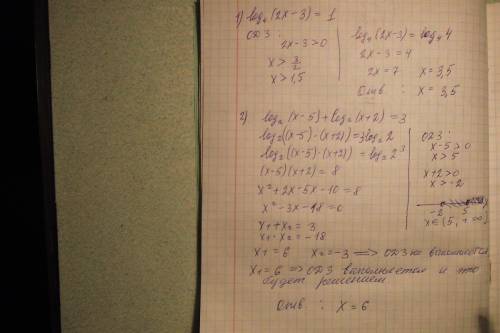 1) log₄(2x-3) = 1
ОДЗ:
2x-3>0
x > 3/2
x > 1,5
log₄(2x-3) = log₄ 4
2x-3 = 4
2x = 7 x = 3,5
Отв : x = 3,5
2) log₂(x-5) + log₂(x+2) = 3
log₂((x-5)·(x+2)) = 3log₂ 2
log₂((x-5)·(x+2)) = log₂ 2³
(x-5)(x+2) = 8
x²+2x-5x-10 = 8
x²-3x-18 = 0
x₁+x₂ = 3
x₁·x₂ = -18
ОДЗ:
x-5>0
x>5
x+2>0
x>-2
-2 5
x∈(5, +∞)
x₁ = 6 x₂ = -3 => ОДЗ не выполняется
x₁ = 6 => ОДЗ выполняется и это
будет решением
Отв : x = 6